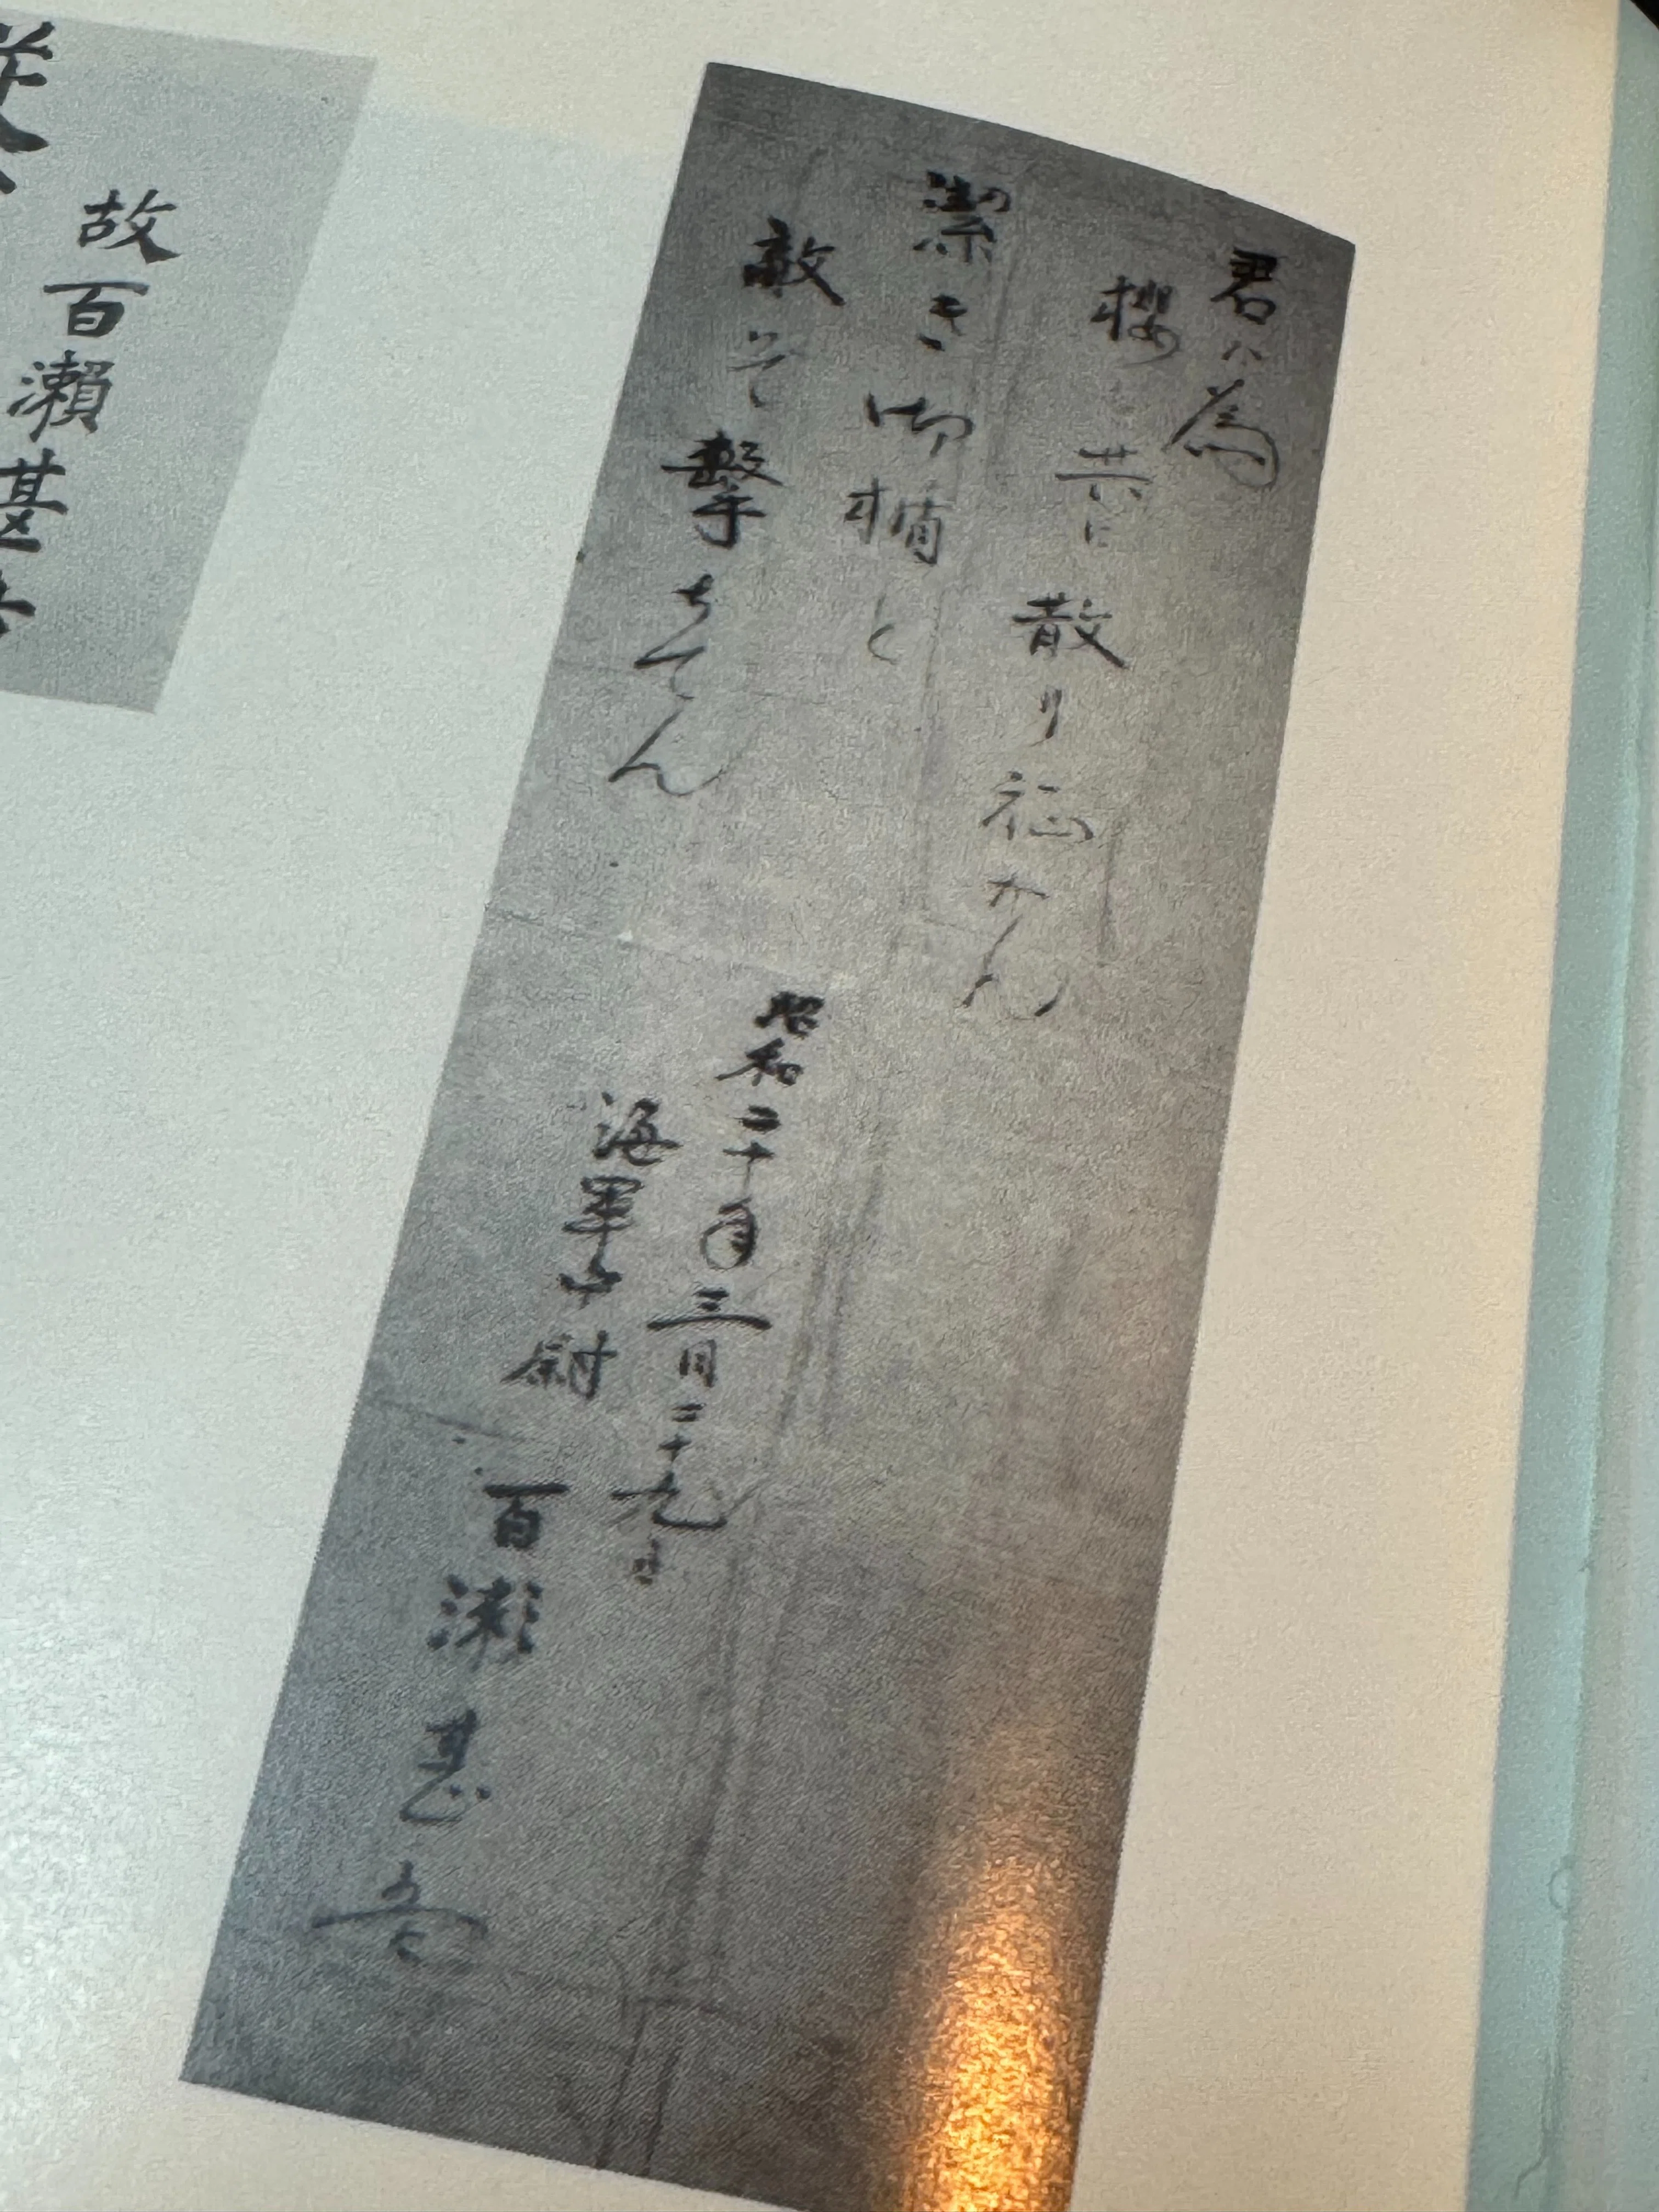 君が為
櫻と共に散り征かん
潔き御楯と
敵を撃ちてん
昭和二十年三月二十九日
海軍中尉
百瀬甚吾
故百瀬甚吾